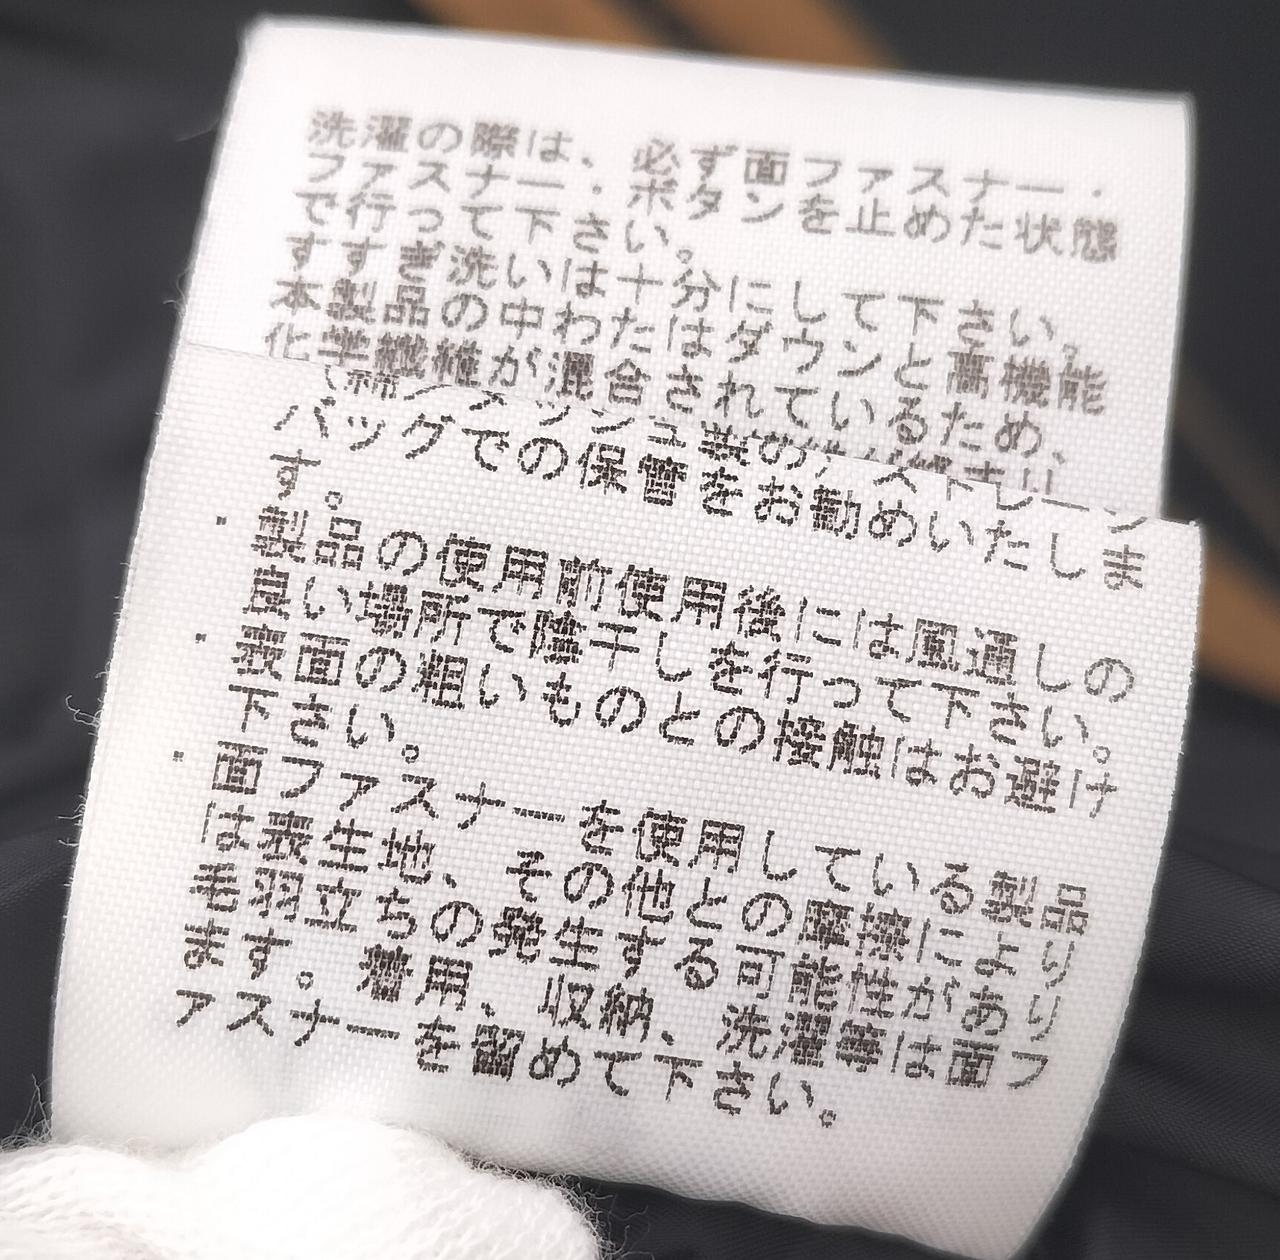 洗濯の際は、必ず面ファスナー・
ファスナー・ボタンを止めた状態
で行って下さい。
すすぎ洗いは十分にして下さい。
本製品の中わたはダウンと高機能
化学繊維が混合されているため、
バッグでの保管をお勧めいたしま
す。
・製品の使用前使用後には風通しの
良い場所で陰干しを行って下さい。
・表面の粗いものとの接触はお避け
下さい。
・面ファスナーを使用している製品
は表生地、その他との摩擦により
毛羽立ちの発生する可能性があり
ます。着用、収納、洗濯等は面フ
ァスナーを留めて下さい。